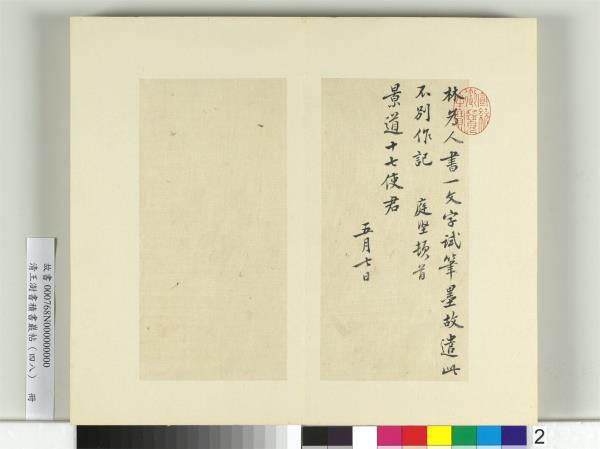 林夫人書一文字試筆墨故遣此
不別作記　庭堅頓首
景道十七使君
五月七日
故書 000768N000000000
清王澍書積書巖帖（四八）　冊
2